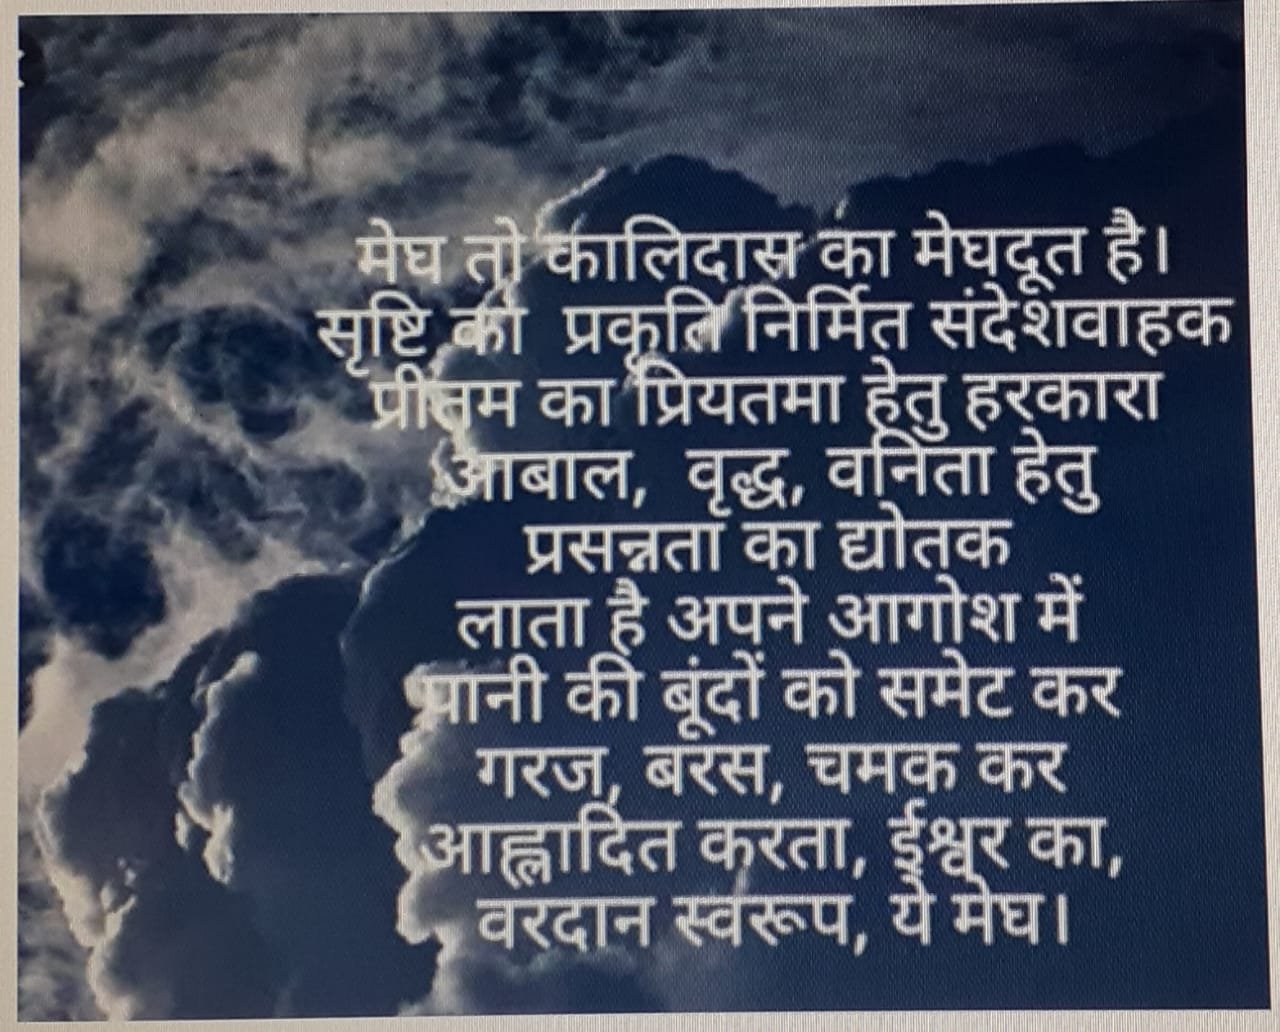 मेघ तो कालिदास का मेघदूत है।
सृष्टि की प्रकृति निर्मित संदेशवाहक
प्रीतम का प्रियतमा हेतु हरकारा
आबाल, वृद्ध, वनिता हेतु
प्रसन्नता का द्योतक
लाता है अपने आगोश में
पानी की बूंदों को समेट कर
गरज, बरस, चमक कर
आह्लादित करता, ईश्वर का,
वरदान स्वरूप, ये मेघ।